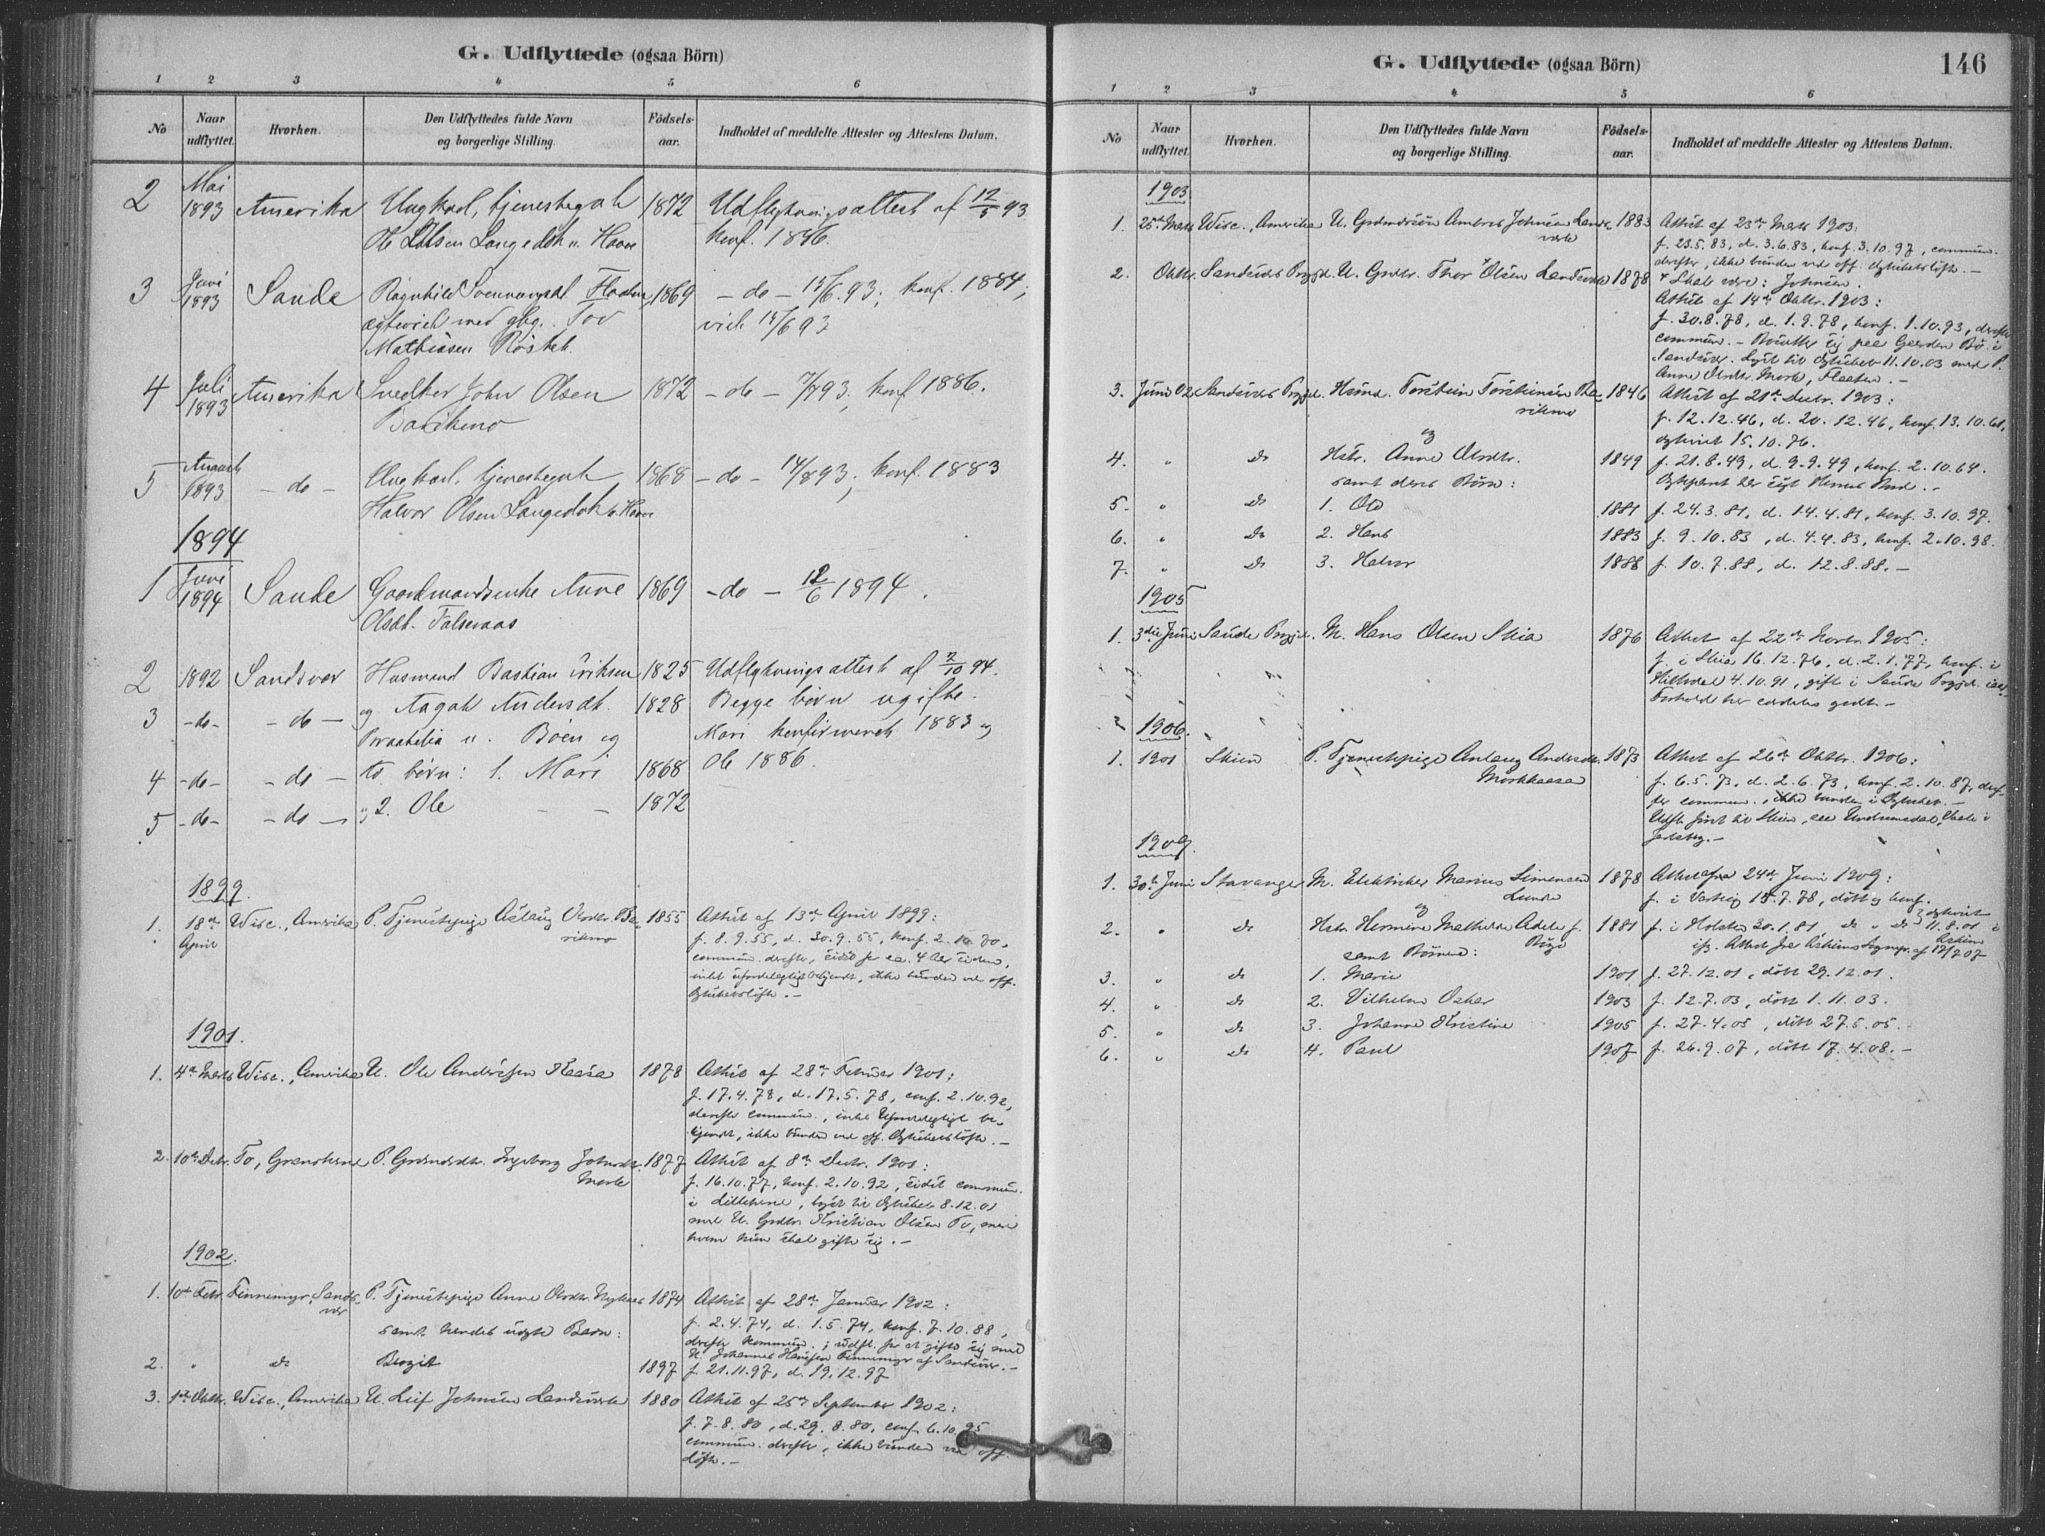 G. Udflyttede (ogsaa Börn)
1 2 3 4 5 6
No
Naar udflyttet.
Hvorhen.
Den Udflyttedes fulde Navn og borgerlige Stilling.
Födsels-aar.
Indholdet af meddelte Attester og Attestens Datum.
2 Mai 1893 Amerika Ungkarl, tjenestegut 1872 Udflytningsattest af 12/5 93
Ole Langedok u. Haave konf. 18
3 Juni 1893 Saude Ragnhild 1869 - do - 15/6.93; konf. 1884;
egteviet med gbg. Tov viet 14/6 93
Mathiasen
4 Juli 1893 Amerika Snedker John Olsen 1872 - do - 7/7 93; konf 1886.
Barikmo
5 August 1893 - do - Ungkarl, tjenestegut 1868 - do - 14/8 93; konf. 1883
Halvor Olsen Langedok u. Haave
1894
1 Juni 1894 Saude Gaardmandsenke Anne 1869 - do - 12/6 1894.
Olsdt.
2 1892 Sandsvær Husmand Bastian Eriksen 1825 Udflytningsattest af 2/10 94.
3 - do - - do - og Aagot Andersdt. 1828 Begge børn ugifte.
u. Bøen og Mari konfirmeret 1883 og
4 - do - - do - to børn: 1. Mari 1868 Ole 1886.
5 - do - - do - og 2. Ole - - 1872
1899.
1. 18de April Wisc., Amerika P. Tjenestepige Aslaug Olsdtr. Ba- 1855 Attest af 13de April 1899:
rikmo f. 8.9.55, d. 30.9.55, konf. 2.10.70,
commun. derefter, for ca. 4 Aar siden,
intet ufordelagtigt bekjendt, ikke bunden ved off.
Ægteskabsløfte. -
1901.
1. 4de Marts Wisc., Amerika U. Ole Kaasa 1878 Attest af 28de Februar 1901:
f. 17.4.78, d. 17.5.78, conf. 2.10.92,
derefter commun., intet Ufordelagtigt be-
kjendt, ikke bunden ved off. Ægteskabsløfte. -
2. 10de Decbr. To, Gransherred P. Ingeborg Johnsdtr. 1877 Attest af 8de Decbr. 1901:
Mork f. 16.10.77, konf. 2.10.92, sidst commun.
i , lyst til Ægteskab 8.12.01
med U. Kristian Olsen To, med
hvem hun skal gifte sig. -
1902.
1. 10de Febr. Finnemyr, Sands- P. Tjenestepige Anne Olsdtr. 1874 Attest af 28de Januar 1902:
vær samt hendes uægte Barn: f. 2.4.74, d. 1.5.74, konf. 7.10.88,
derefter kommun.; udfl. for at gifte sig med
U. Johannes Hansen Finnemyr af Sandsvær. -
2. " do Birgit 1897 f. 21.11.97, d. 19.12.97
3. 1ste Oktbr. Wisc., Amerika U. Leif Johnsen Landsverk 1880 Attest af 25de September 1902:
f. 7.8.80, d. 29.8.80, conf. 6.10.95
commun. derefter, ikke bunden ved off.
løfte. -
G. Udflyttede (ogsaa Börn)
146
1 2 3 4 5 6
No
Naar udflyttet.
Hvorhen.
Den Udflyttedes fulde Navn og borgerlige Stilling.
Födsels-aar.
Indholdet af meddelte Attester og Attestens Datum.
1903
1. 25de Marts Wisc., Amerika U. Ambros Johnsen Lands- 1883 Attest af 23de Marts 1903:
verk f. 23.5.83, d. 3.6.83, konf. 3.10.97, commun.
derefter, ikke bunden ved off. Ægteskabsløfte. -
2. Oktbr. Sandsvær Prgjd. U. Thor Olsen Landsverk 1878 Skal være: Johnsen.
Attest af 14de Oktbr. 1903:
f. 30.8.78, d. 1.9.78, konf. 1.10.93, derefter
commun. - Bosætter sig paa Gaarden Bø i
Sandsvær. Lyst til Ægteskab 11.10.03 med P.
Anne Olsdtr. Mork, Flesberg. -
3. Juni 02 Sandsvær Prgjd. Husmd. Torstein Torsteinsen Ba- 1846 Attest af 21de Decbr. 1903:
rikmo f. 12.12.46, d. 20.12.46, konf. 13.10.61,
og ægteviet 15.10.76.
4. " do Hstr. Anne Olsdtr. 1849 f. 21.8.49, d. 9.9.49, konf. 2.10.64.
samt deres Børn:
5. " do 1. Ole 1881 f. 24.3.81, d. 14.4.81, konf. 3.10.97.
6. " do 2. Hans 1883 f. 9.10.83, d. 4.4.83, konf. 2.10.98.
7. " do 3. Halvor 1888 f. 10.7.88, d. 12.8.88. -
1905
1. 3die Juni Saude Prgjd. M. Hans Olsen Skia 1876 Attest af 22de Novbr. 1905:
f. i Skia 16.12.76, d. 2.1.77, konf. i
Hitterdal 4.10.91, gift i Saude Prgjd.
Forhold her godt. -
1906.
1. 1901 Skien P. Tjenestepige Anlaug Andersdtr. 1873 Attest af 26de Oktbr. 1906:
Morkkaasa f. 6.5.73, d. 2.6.73, konf. 2.10.87, deref-
ter commun., ikke bunden i Ægteskab. -
Udfl. først til Skien, saa Undrumsdal, Vaale i
Jarlsberg. -
1909.
1. 30te Juni Stavanger M. Elektriker Marius Simensen 1878 Attest fra 24de Juni 1909:
Lunde f. i 15.7.78, døbt og konf.
og
2. " do Hstr. Hermine Mathilde Adele f. 1881 f. i Holsten 30.1.81, do " do ægteviet 11.8.01 i Askim
Bøge ifg. Attest fra Askims Sogneprest af 12/7 07
samt Børnene:
3. " do 1. Marie 1901 f. 27.12.01, døbt 29.12.01.
4. " do 2. Vilhelm Oskar 1903 f. 12.7.03, døbt 1.11.03.
5. " do 3. Johanne Kristine 1905 f. 27.4.05, døbt 27.5.05.
6. " do 4. Paul 1907 f. 26.9.07, døbt 17.4.08. -